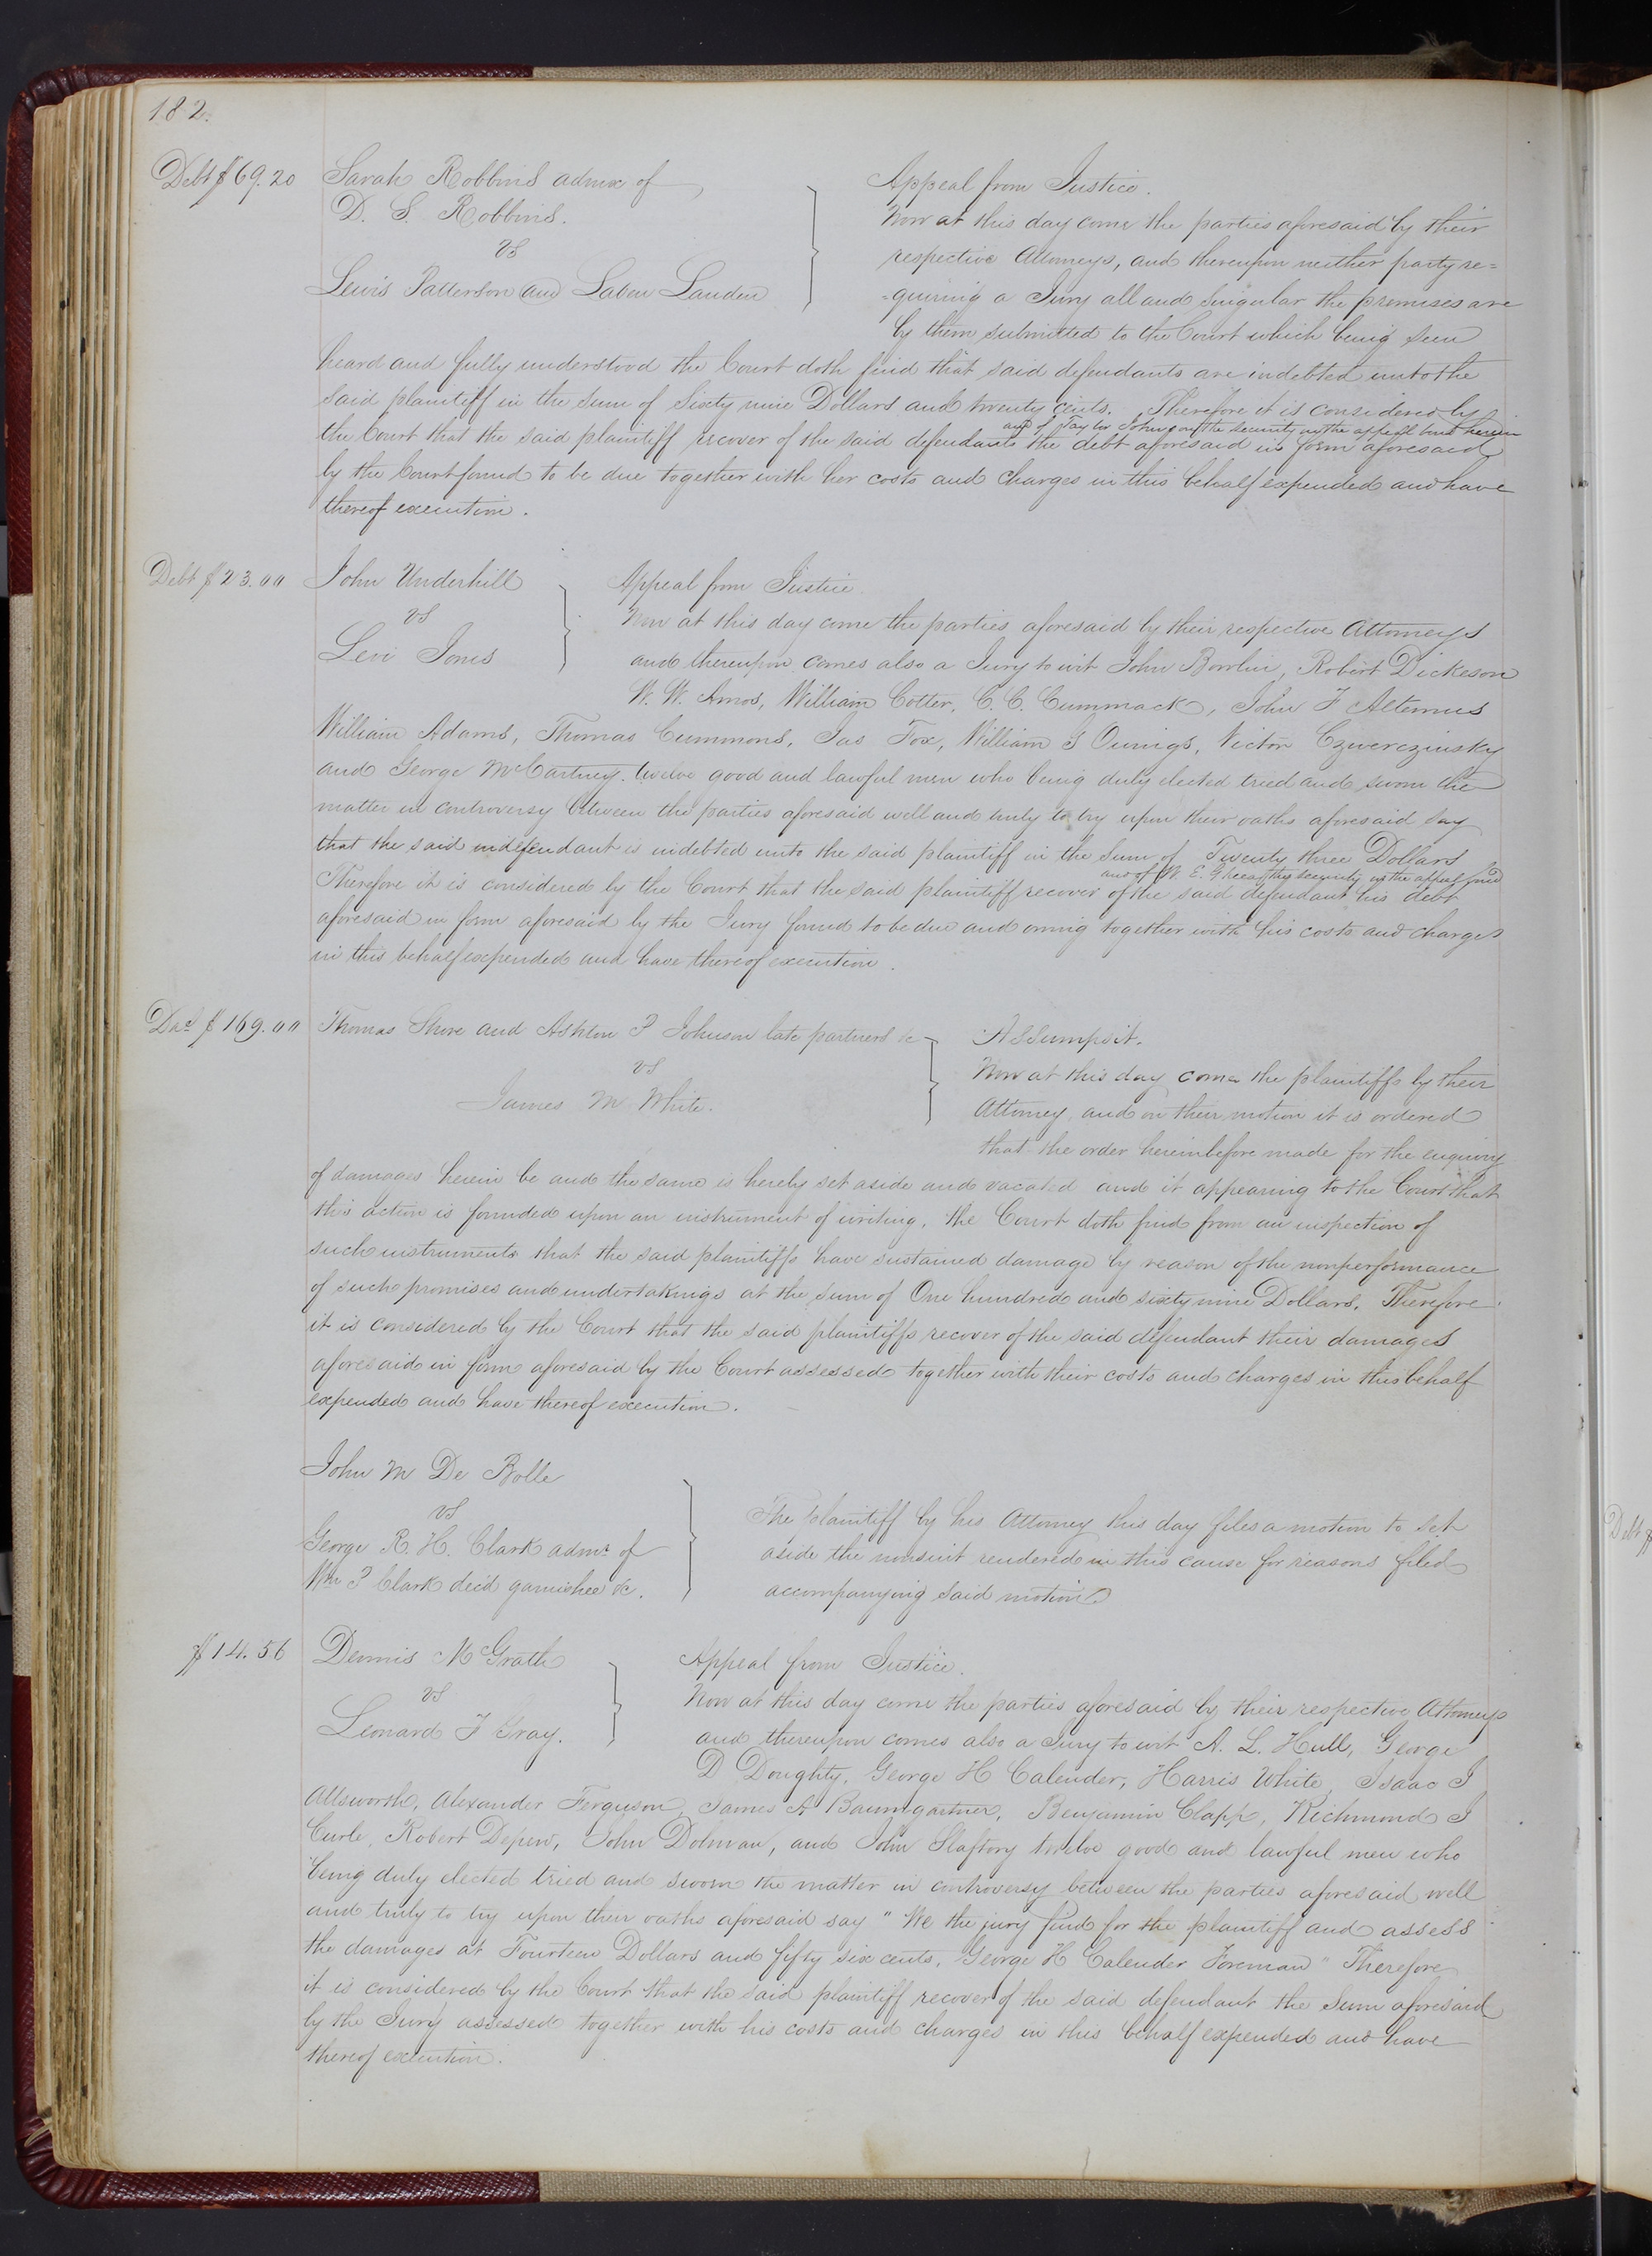 182.
Debt $69.20
Sarah Robbins admx of
D. S. Robbins.
vs
Lewis Patterson and Laben Landen
Appeal from Justice.
Now at this day come the parties aforesaid by their
respective Attorneys, and thereupon neither party re=
=quiring a Jury all and singular the premises are
by them submitted to the Court which being seen
heard and fully understood the Court doth find that said defendants are indebted unto the
said plaintiff in the sum of Sixty nine Dollars and twenty cents. Therefore it is considered by
and of Taylor Johnson the security in the appeal bond herein
the Court that the said plaintiff recover of the said defendants the debt aforesaid in form aforesaid
by the Court found to be due together with her costs and charges in this behalf expended and have
thereof execution.
Debt $23.00
John Underhill
vs
Levi Jones
Appeal from Justice.
Now at this day come the parties aforesaid by their respective Attorneys
and thereupon comes also a Jury to wit John Bowlin, Robert Dickeson
W. W. Amos, William Cotter, C. C. Cummack, John F Altemus
William Adams, Thomas Cummons, Jas Fox, William G Owings, Victor Czwerczinsky
and George McCartney. twelve good and lawful men who being duly elected tried and sworn the
matter in controversy between the parties aforesaid well and truly to try upon their oaths aforesaid say
that the said indefendant is indebted unto the said plaintiff in the sum of Twenty three Dollars
and of W. E. the security in the appeal bond
Therefore it is considered by the Court that the said plaintiff recover of the said defendant his debt
aforesaid in form aforesaid by the Jury found to be due and owing together with his costs and charges
in this behalf expended and have thereof execution.
Da$ $169.00
Thomas Shore and Ashton P Johnson late partners &c
vs
James M White.
Assumpsit.
Now at this day come the plaintiffs by their
Attorney, and on their motion it is ordered
that the order hereinbefore made for the enquiry
of damages herein be and the same is hereby set aside and vacated and it appearing to the Court that
this action is founded upon an instrument of writing, the Court doth find from an inspection of
such instruments that the said plaintiffs have sustained damage by reason of the nonperformance
of such promises and undertakings at the sum of One hundred and sixty nine Dollars. Therefore
it is considered by the Court that the said plaintiffs recover of the said defendant their damages
aforesaid in form aforesaid by the Court assessed together with their costs and charges in this behalf
expended and have thereof execution.
John M De Bolle
vs
George R. H. Clark admr of
Wm P Clark dec'd garnishee &c.
The plaintiff by his Attorney this day files a motion to set
aside the nonsuit rendered in this cause for reasons filed
accompanying said motion
$14.56
Dennis McGrath
vs
Leonard F Gray.
Appeal from Justice.
Now at this day come the parties aforesaid by their respective Attorneys
and thereupon comes also a Jury to wit A. L. Hull, George
D Doughty, George H Calender, Harris White, Isaac J
Allsworth, Alexander Ferguson, James A Baumgartner, Benjamin Clapp, Richmond J
Curle, Robert Depew, John Dolman, and John Slaftory twelve good and lawful men who
being duly elected tried and sworn the matter in controversy between the parties aforesaid well
and truly to try upon their oaths aforesaid say "We the jury find for the plaintiff and assess
the damages at Fourteen Dollars and fifty six cents, George H Calender Foreman" Therefore
it is considered by the Court that the said plaintiff recover of the said defendant the sum aforesaid
by the Jury assessed together with his costs and charges in this behalf expended and have
thereof execution.
Debt $